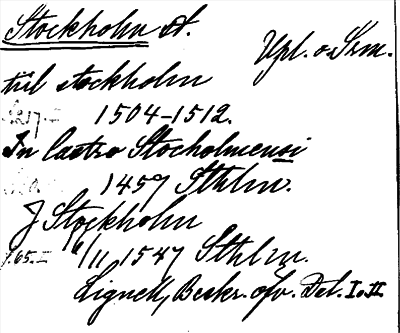 Stockholm st.
Upl. o. Srm.
till stockholm
1504-1512.
In Castro Stocholmensi
1457 Sthlm.
J Stockholm
65. II 6/11 1547 Sthlm.
Lignell, Beskr. Del. I. II